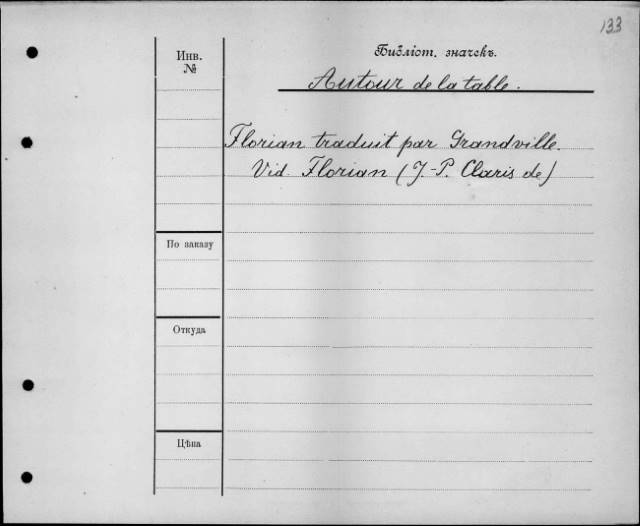 133
Инв.
№
Библіот. значекъ.
Autour de la table.
Florian traduit par Grandville.
Vid. Florian (J.-P. Claris de)
По заказу
Откуда
Цѣна